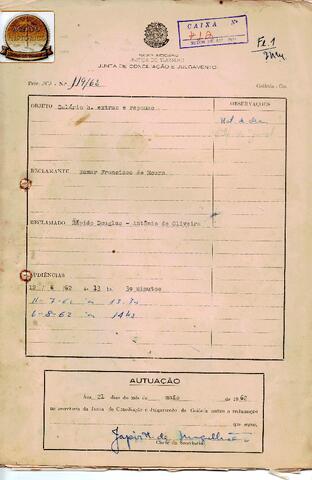 CAIXA Nº
Fl. 1
JUSTIÇA DO TRABALHO
JUNTA DE CONCILIAÇÃO E JULGAMENTO
Proc. JCJ - N.º 119/62
Goiânia - Go.
OBJETO Salário h. extras e repouso
OBSERVAÇÕES
RECLAMANTE Francisco de Moura
RECLAMADO Rápido Douglas - Antônio de Oliveira
AUDIÊNCIAS
6 62 13 30 minutos
11-7-62 às 13.30
6-8-62 às 14hs
AUTUAÇÃO
Aos 21 dias do mês de maio de 1962
na secretaria da Junta de Conciliação e Julgamento de Goiânia autuo a reclamação
que segue.
Chefe da Secretaria